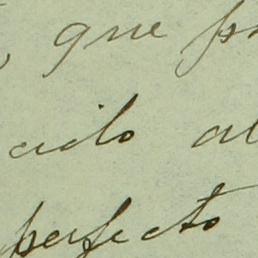 , que
cido al
perfecto